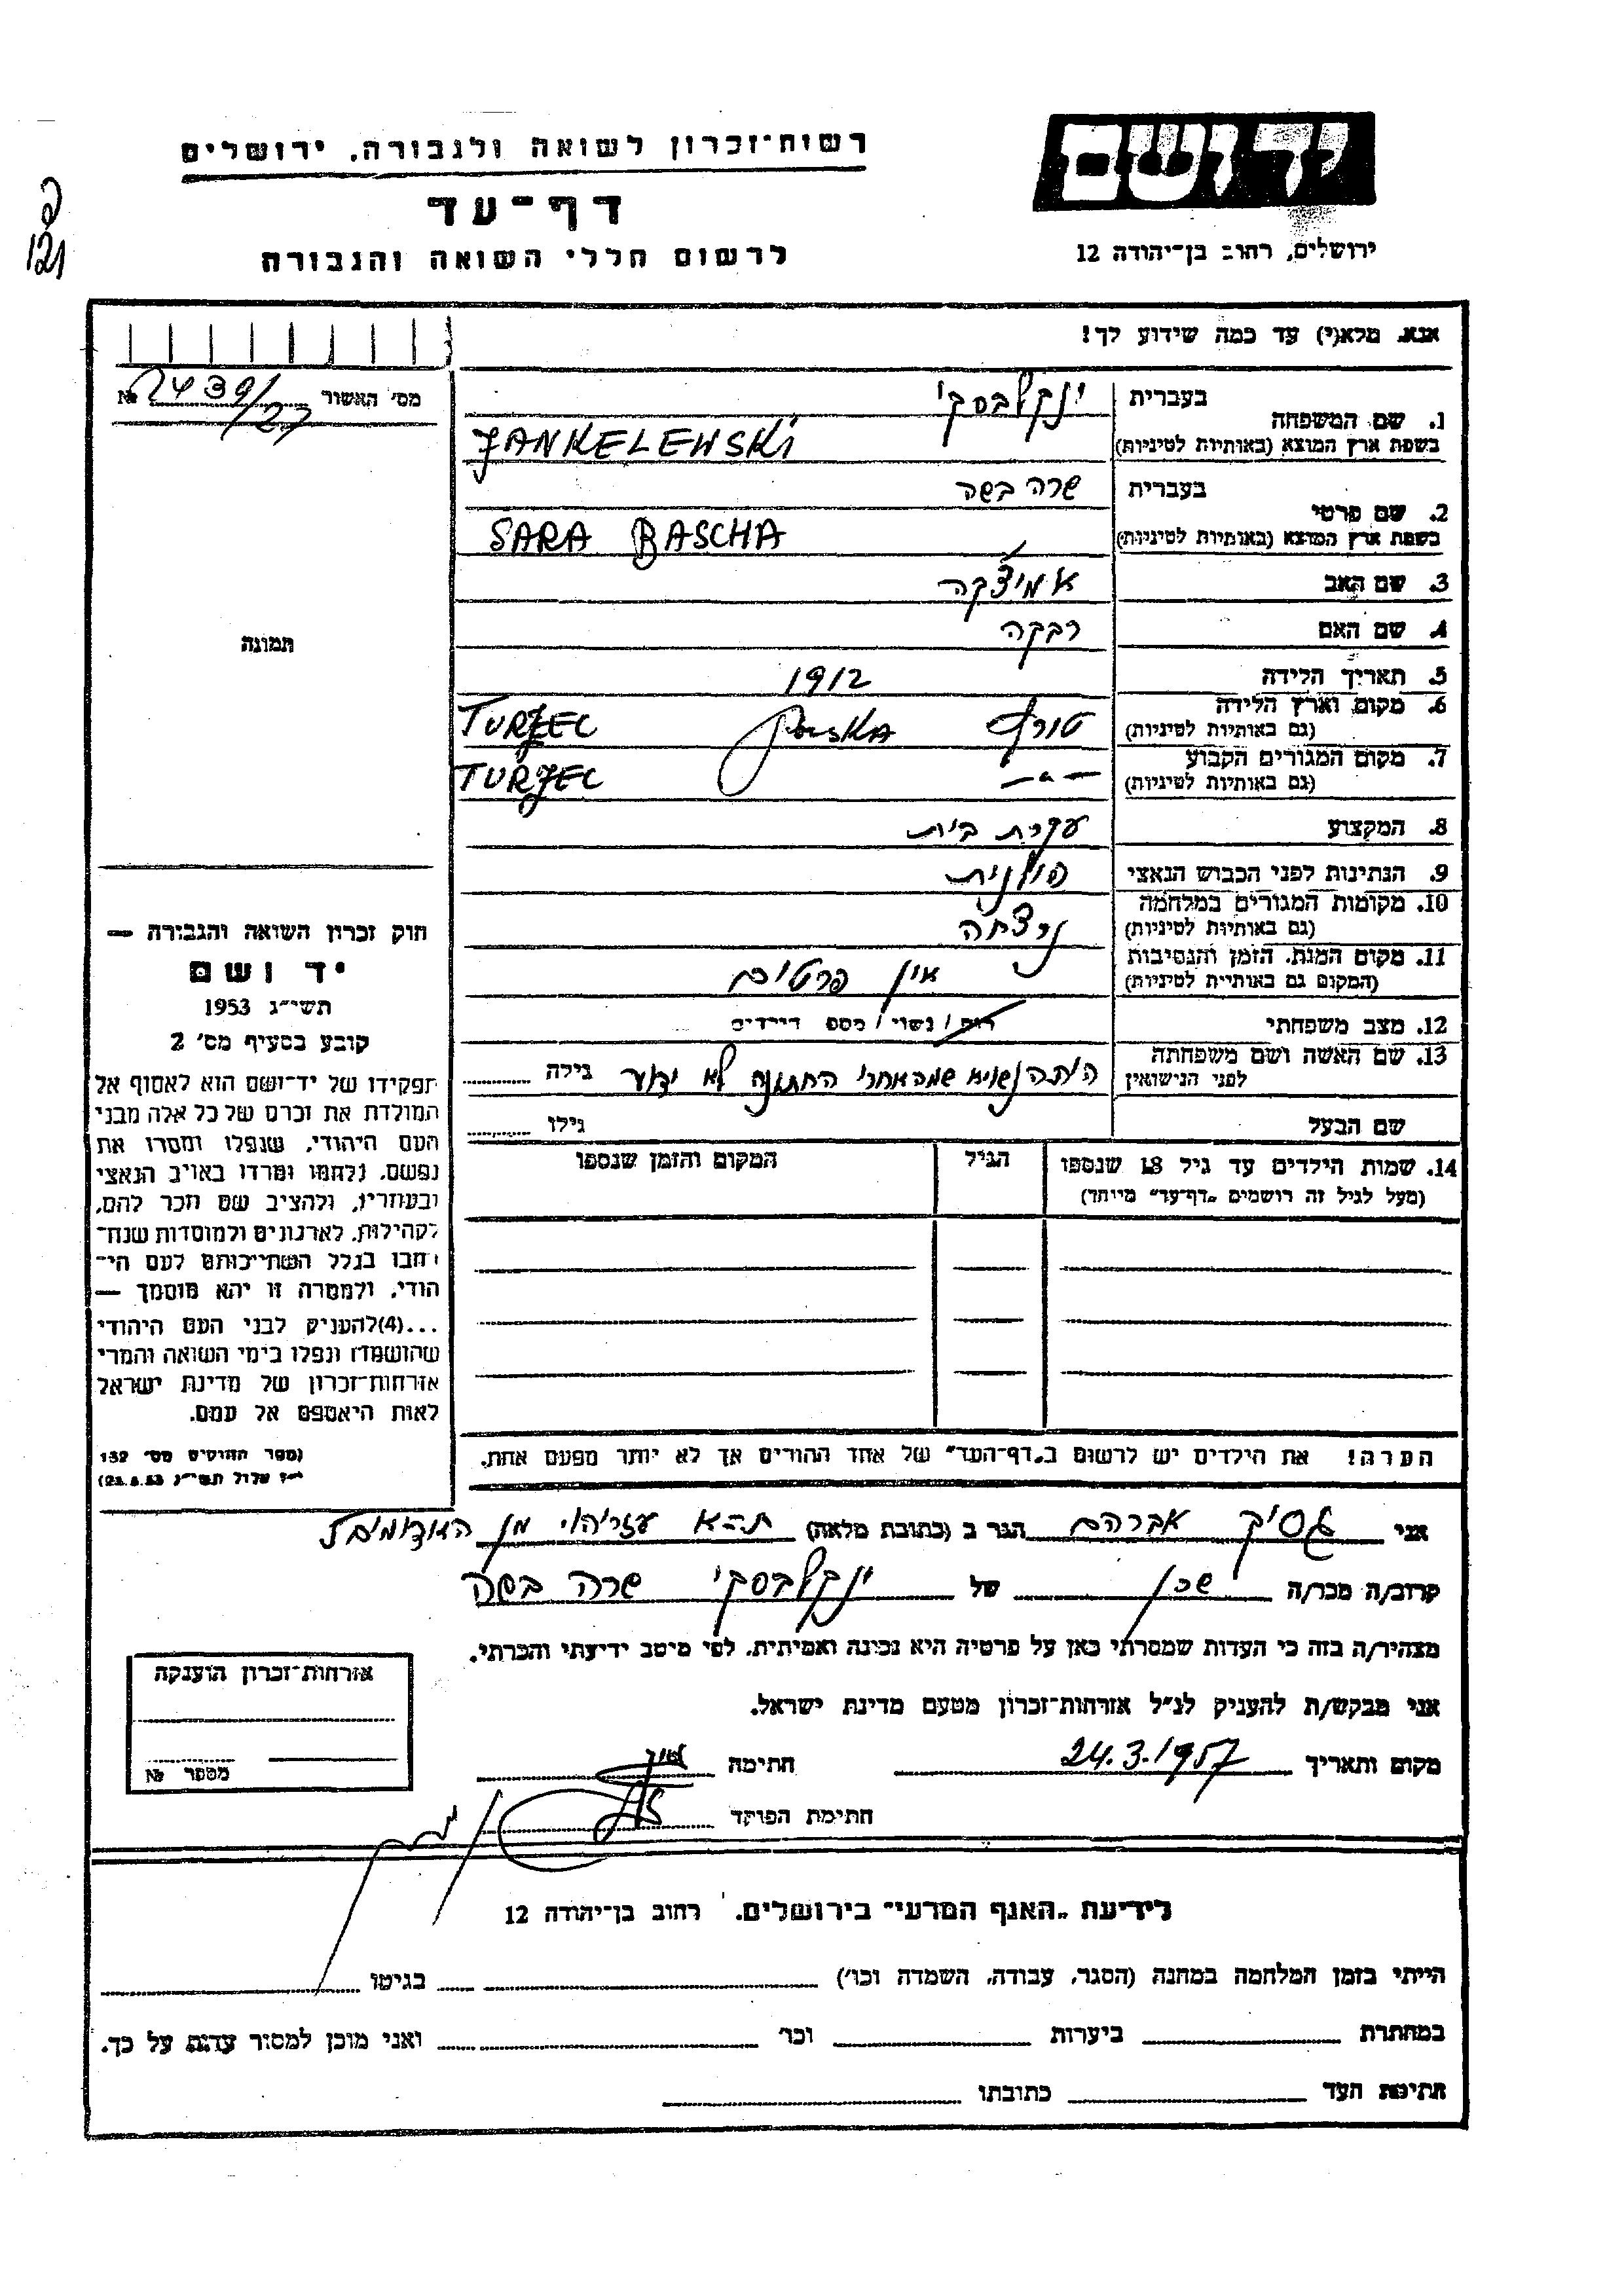 רשות־זכרון לשואה ולגבורה, ירושלים
דף־עד
לרשום חללי השואה והגבורה
יד ושם
ירושלים, רחוב בן־יהודה 12
אנא, מלא(י) עד כמה שידוע לך!
מס' האשור № 2439/27
1. שם המשפחה
בעברית ינקלבסקי
בשפת ארץ המוצא (באותיות לטיניות) JANKELEWSKI
2. שם פרטי
בעברית שרה בשה
בשפת ארץ המוצא (באותיות לטיניות) SARA BASCHA
3. שם האב
4. שם האם רבקה
5. תאריך הלידה 1912
6. מקום וארץ הלידה
(גם באותיות לטיניות) POLSKA TURZEC
7. מקום המגורים הקבוע
(גם באותיות לטיניות) — " — TURZEC
8. המקצוע עקרת בית
9. הנתינות לפני הכבוש הנאצי פולנית
10. מקומות המגורים במלחמה
(גם באותיות לטיניות) נרצחה
11. מקום המות, הזמן והנסיבות
(המקום גם באותיות לטיניות) אין פרטים
12. מצב משפחתי רוק / נשוי / מספר ילדים
13. שם האשה ושם משפחתה
לפני הנישואין היתה נשואה שמה אחרי החתונה לא ידוע גילה
שם הבעל גילו
14. שמות הילדים עד גיל 18 שנספו
(מעל לגיל זה רושמים „דף־עד" מיוחד)
הגיל
המקום והזמן שנספו
הערה! את הילדים יש לרשום ב„דף־העד" של אחד ההורים אך לא יותר מפעם אחת.
תמונה
חוק זכרון השואה והגבורה —
יד ושם
תשי"ג 1953
קובע בסעיף מס' 2
תפקידו של יד־ושם הוא לאסוף אל
המולדת את זכרם של כל אלה מבני
העם היהודי, שנפלו ומסרו את
נפשם, נלחמו ומרדו באויב הנאצי
ובעוזריו, ולהציב שם וזכר להם,
לקהילות, לארגונים ולמוסדות שנח־
רבו בגלל השתייכותם לעם הי־
הודי, ולמטרה זו יהא מוסמך —
...(4) להעניק לבני העם היהודי
שהושמדו ונפלו בימי השואה והמרי
אזרחות־זכרון של מדינת ישראל
לאות היאספם אל עמם.
(ספר החוקים מס' 132
י"ז אלול תשי"ג 28.8.53)
אני גסיק אברהם הגר ב (כתובת מלאה) ת-א
קרוב/ה מכר/ה שכן של ינקלבסקי שרה בשה
מצהיר/ה בזה כי העדות שמסרתי כאן על פרטיה היא נכונה ואמיתית, לפי מיטב ידיעתי והכרתי.
אני מבקש/ת להעניק לנ"ל אזרחות־זכרון מטעם מדינת ישראל.
מקום ותאריך 24.3.1957 חתימה
חתימת הפוקד
אזרחות־זכרון הוענקה
מספר №
לידיעת „האגף המדעי" בירושלים, רחוב בן־יהודה 12
הייתי בזמן המלחמה במחנה (הסגר, עבודה, השמדה וכו') בגיטו
במחתרת ביערות וכו' ואני מוכן למסור עדות על כך.
חתימת העד כתובתו